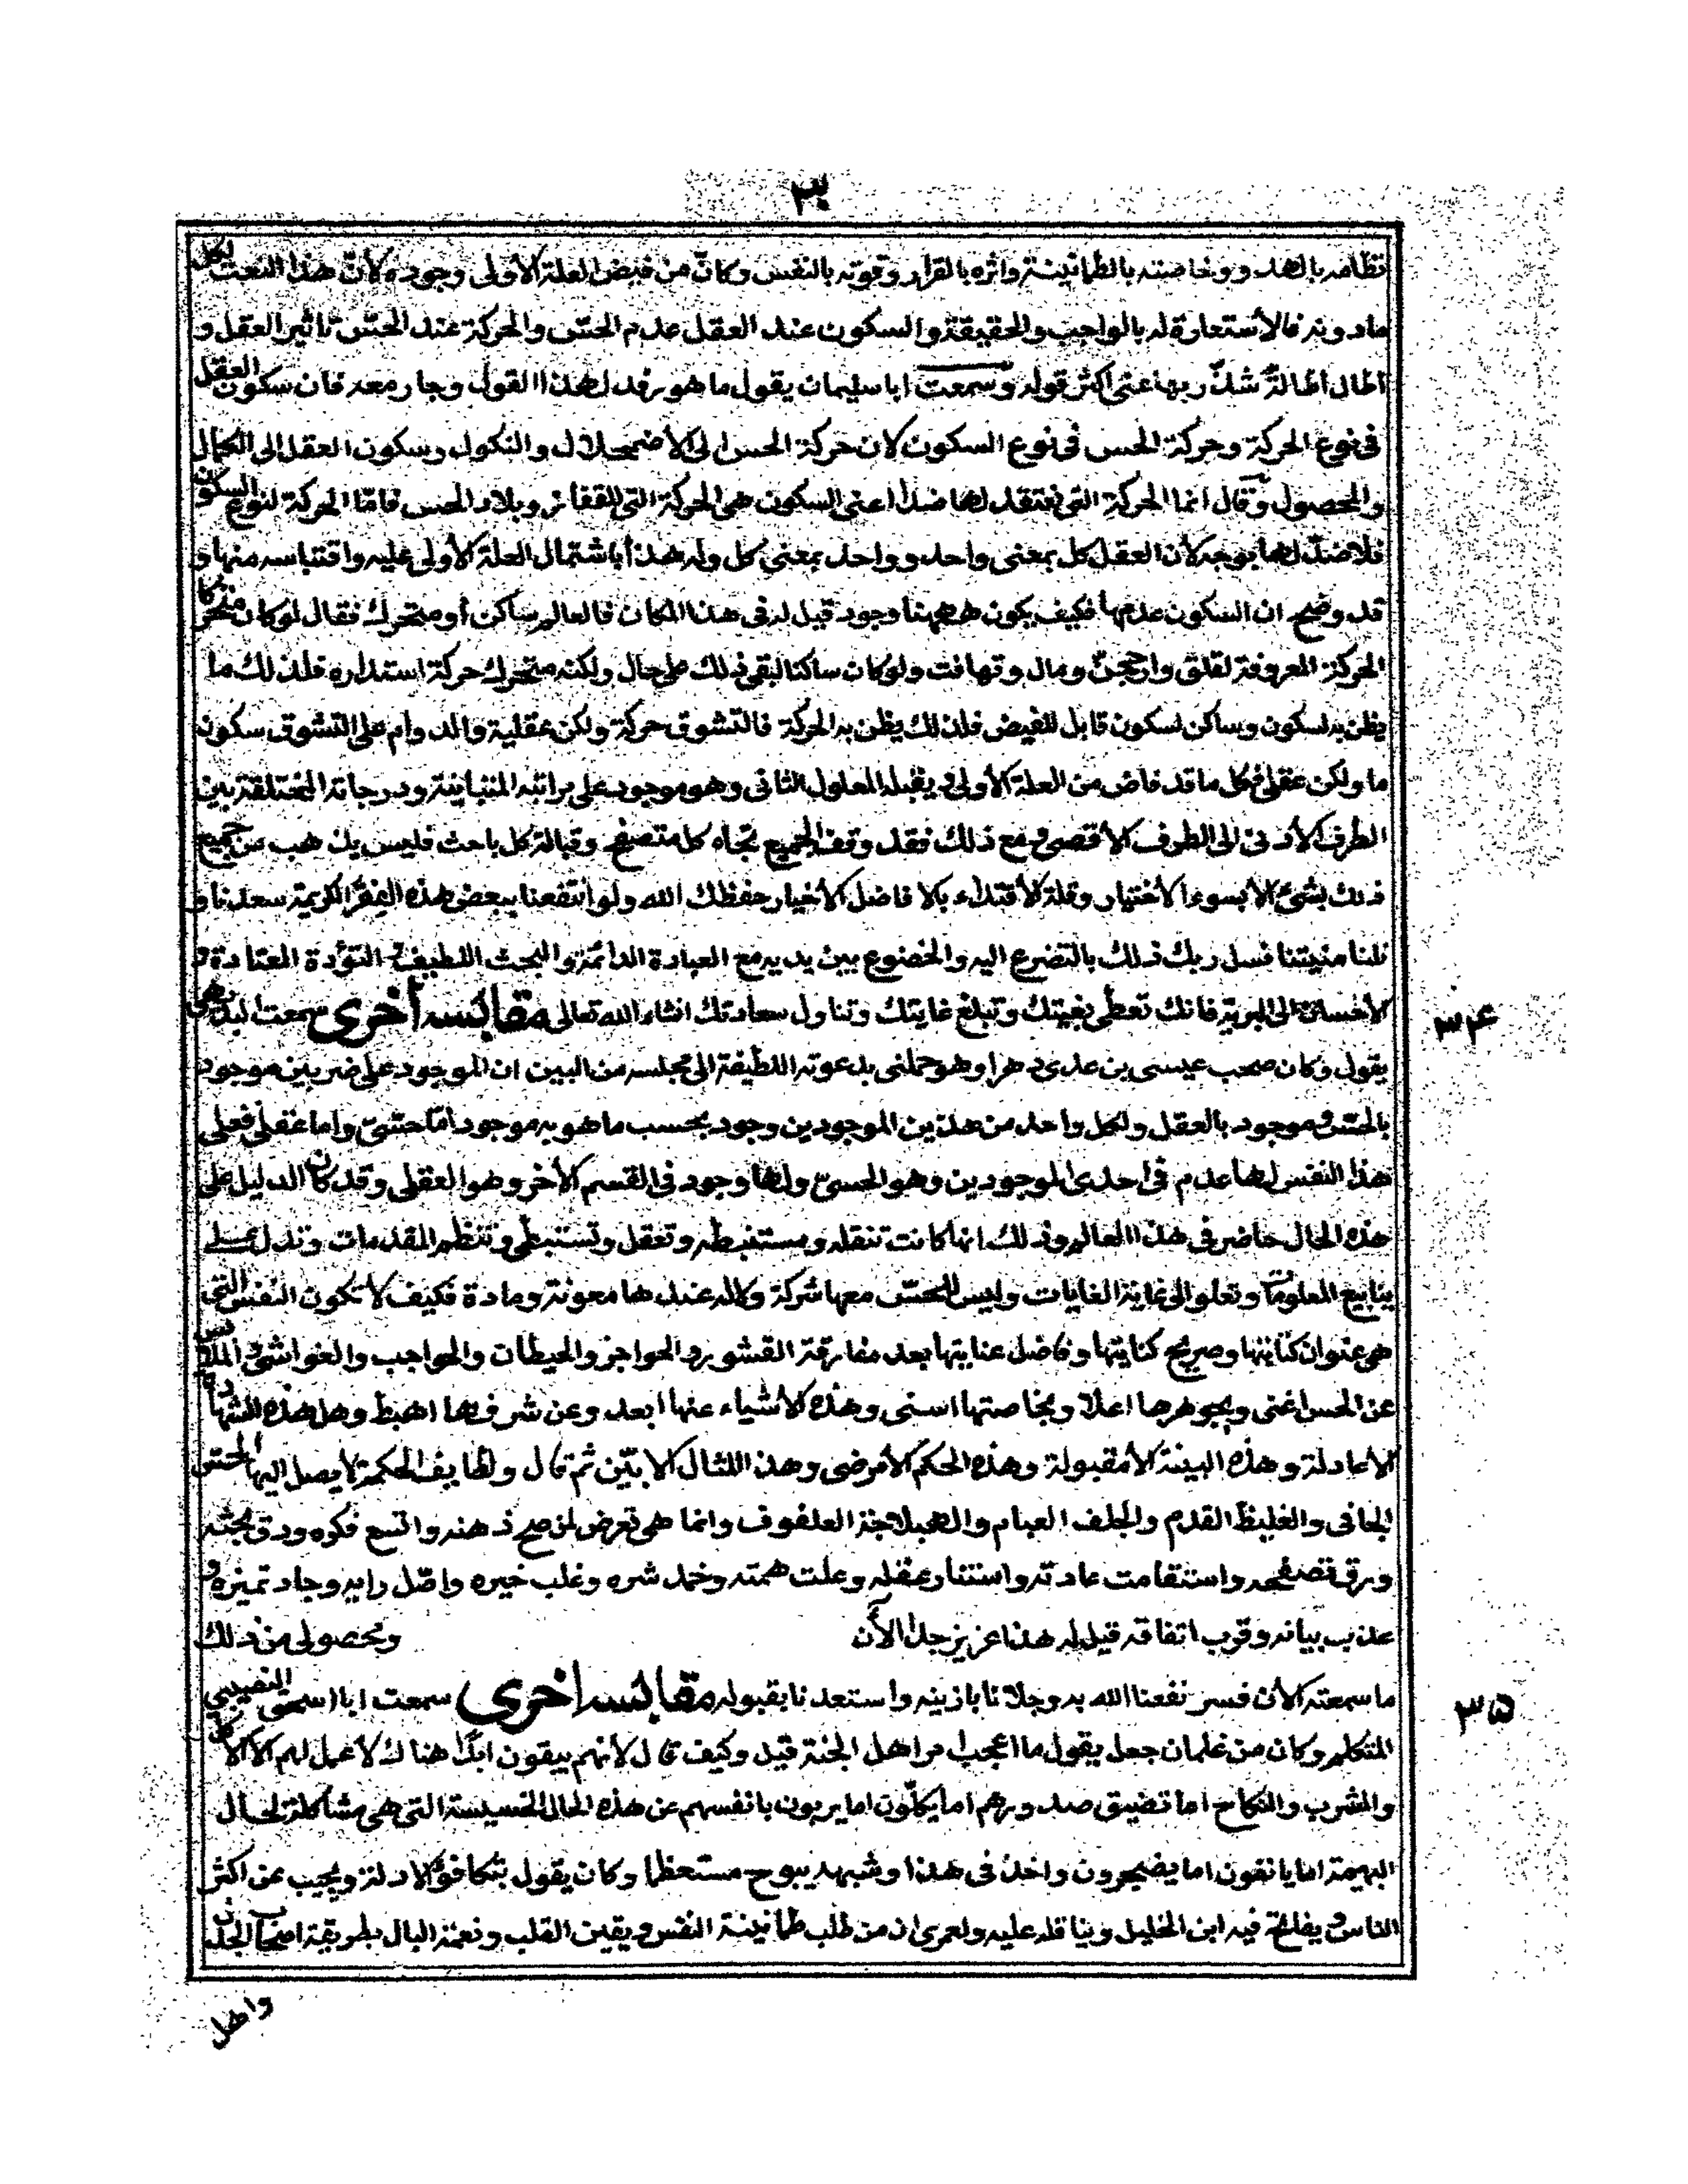 ٣٠
نظامه بالهدو وخاصته بالطمانينة واثره بالقرار وقوته بالنفس وكانّ من فيض العلة الأولى وجوده لأنّ هذا النعت لكل
ما دونه فالأستعارة له بالواجب والحقيقة والسكون عند العقل عدم الحسّ والحركة عند الحسّ تاثير العقل و
اطال اطالةً شذّ ربها عنى اكثر قوله وسمعت ابا سليمان يقول ما هو رفد لهذا القول وجار معه فان سكون العقل
فى نوع الحركة وحركة الحس فى نوع السكون لان حركة الحس الى الأضمحلال والنكول وسكون العقل الى الكمال
والحصول وقال انما الحركة التى نعتقد لها ضدا اعنى السكون هى الحركة التى وبلاد الحس فامّا الحركة لنوع السكون
فلا ضدّ لها بوجه لأن العقل كل بمعنى واحد وواحد بمعنى كل وله هذا باشتمال العلة الأولى عليه واقتباسه منها و
قد وضح ان السكون عدمها فكيف يكون ههنا وجود قيل له فى هذا المكان فالعالم ساكن أو متحرك فقال لو كان متحركا
الحركة المعروفة لقلق وارجحنّ ومال وتهافت ولو كان ساكنا لبقى ذلك على حال ولكنه متحرك حركة استداره فلذلك ما
يظن به لسكون وساكن لسكون قابل للفيض فلذلك يظن به الحركة فالتشوق حركة ولكن عقلية والدوام على التشوق سكون
ما ولكن عقلىّ كل ما قد فاض من العلة الأولى ويقبله المعلول الثانى وهو موجود على مراتبه المتباينة ودرجاته المختلفة بين
الطرف الأدنى الى الطرف الأقصى ومع ذلك فقد وقف الجميع تجاه كل متصفح وقبالة كل باحث فليس يذهب من جميع
ذلك بشئ الا بسوء الأختيار وقلة الأقتداء بالافاضل الأخيار حفظك الله ولو انتفعنا ببعض هذه الفقر الكريمة سعدنا و
نلنا منيتنا فسل ربك ذلك بالتضرع اليه والخضوع بين يديه مع العبادة الدائمة والبحث اللطيف والتؤدة المعتادة و
الأحسان الى البرية فانك تعطى بغيتك وتبلغ غايتك وتناول سعادتك انشاء الله تعالى مقابسه أخرى سمعت البديهى
٣٤
يقول وكان صحب عيسى بن عدى دهرا وهو حملنى بدعوته اللطيفة الى مجلسه من البين ان الموجود على ضربين موجود
بالحسّ وموجود بالعقل ولكل واحد من هذين الموجودين وجود بحسب ما هو به موجود امّا حسّىّ واما عقلى فعلى
هذا النفس لها عدم فى احدى الموجودين وهو الحسىّ ولها وجود فى القسم الأخر وهو العقلى وقد كان الدليل على
هذه الحال حاضر فى هذا العالم وذلك انها كانت تنقله ومستنبطه وتعقل وتستنبطى وتنظم المقدمات وتدل على
ينابيع المعلومات وتعلو الى غاية الغايات وليس للحسّ معها شركة ولاله عندها معونة ومادة فكيف لا تكون النفس التى
هى عنوان كتابتها وصريح كنايتها وفاضل عنايتها بعد مفارقة القشور والحواجز والحيطان والحواجب والغواشى والملابس
عن الحس اغنى وبجوهرها اعلا وبخاصتها اسنى وهذه الأشياء عنها ابعد وعن شرفها اهبط وهل هذه الشهادة
الا عادلة وهذه البينة الا مقبولة وهذه الحكم الا مرضى وهذا المثال الا بيّن ثم قال ولطايف الحكمة لا يصل اليها الحسّ
الجافى والغليظ القدم والجلف العبام والهبلاجة العلفوف وانما هى تعرض لمن صح ذهنه واتسع فكره ودق بحثه
ورق تصفحه واستقامت عادته واستنار عقله وعلت همته وخمد شره وغلب خيره واصّل رايه وجاد تميزه و
عذب بيانه وقرب اتفاقه قيل له هذا عزيز جدا الآن ومحصولى من ذلك
ما سمعته الأن فسر نفعنا الله به وجلانا بازينه واستعدنا بقبوله مقابسه اخرى سمعت ابا اسحق النصيبى
٣٥
المتكلم وكان من غلمان جعل يقول ما اعجب امر اهل الجنة قيل وكيف قال لأنهم يبقون ابدًا هناك لا عمل لهم الا الأكل
والشرب والنكاح اما تضيق صدورهم اما يكلّون اما يربون بانفسهم عن هذه الحال الخسيسة التى هى مشاكلة لحال
البهيمة اما يانفون اما يضجرون واخذ فى هذا وشبهه يبوح مستعظما وكان يقول بتكافؤ الادلة ويجيب عن اكثر
الناس ويفاتح فيه ابن الخليل ويناقله عليه ولعمرى ان من طلب طمانينة النفس ويقين القلب ونعمة البال بطريقة اصحاب الجدل
واهل